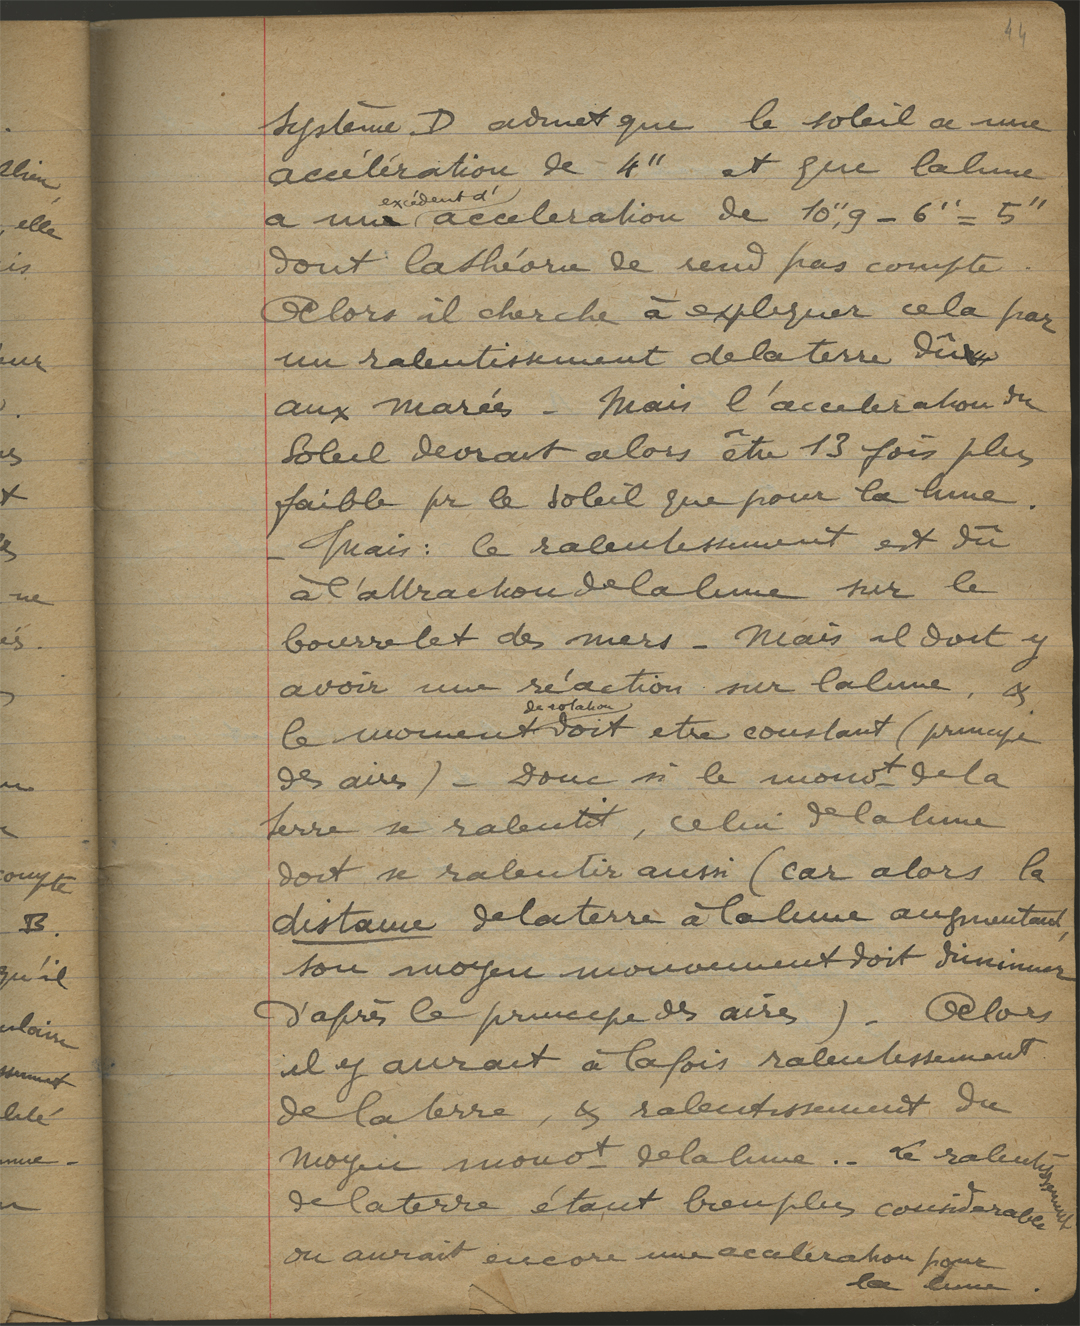 44
système D admet que le soleil a une
accélération de 4" et que la lune
excédent d'
a une acceleration de 10",9 - 6" = 5"
dont la théorie ne rend pas compte.
Alors il cherche à expliquer cela par
un ralentissement de la terre dû
aux marées - Mais l'acceleration du
Soleil devrait alors être 13 fois plus
faible pr le soleil que pour la lune.
- Mais : le ralentissement est dû
à l'attraction de la lune sur le
bourrelet des mers - Mais il doit y
avoir une réaction sur la lune, &
de rotation
le moment doit etre constant (principe
des aires) - Donc si le mouvt de la
terre se ralentit, celui de la lune
doit se ralentir aussi (car alors la
distance de la terre à la lune augmentant,
son moyen mouvement doit diminuer
d'après le principe des aires) - Alors
il y aurait à la fois ralentissement
de la terre, & ralentissement du
moyen mouvt de la lune .. Le ralentissement
de la terre étant bien plus considerable
on aurait encore une acceleration pour
la lune.
ellé
is
ne
compte
B.
qu'il